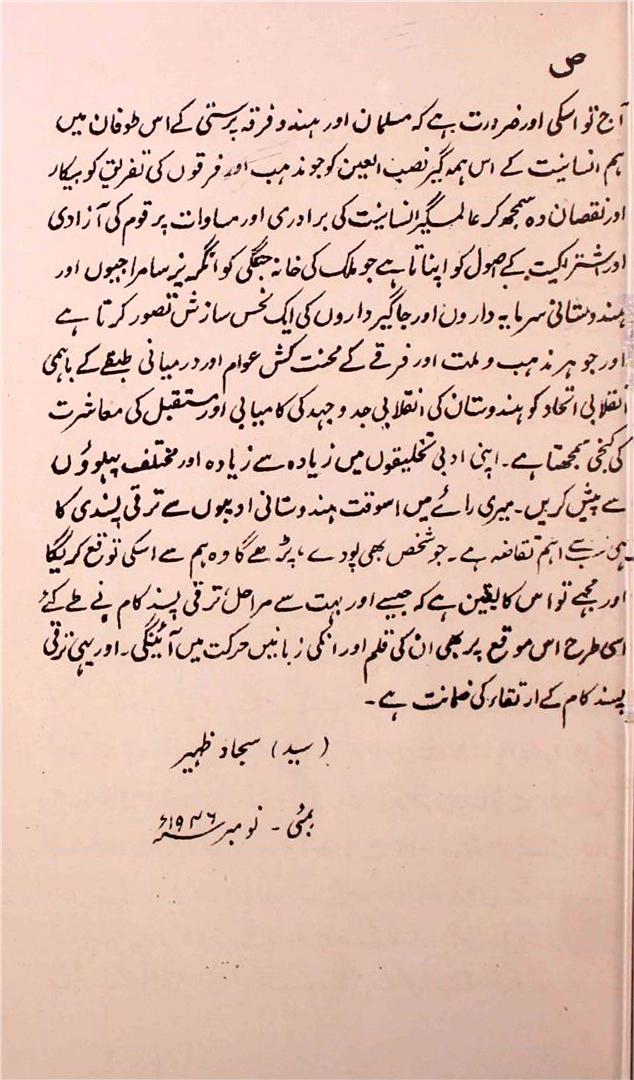 ص
آج تو اسکی اور ضرورت ہے کہ مسلمان اور ہندو فرقہ پرستی کے اس طوفان میں
ہم انسانیت کے اس ہمہ گیر نصب العین کو جو مذہب اور فرقوں کی تفریق کو بیکار
اور نقصان دہ سمجھ کر عالمگیر انسانیت کی برادری اور مساوات پر قوم کی آزادی
اور اشتراکیت کے اصول کو اپناتا ہے جو ملک کی خانہ جنگی کو انگریز سامراجیوں اور
ہندوستانی سرمایہ داروں اور جاگیرداروں کی ایک نجس سازش تصور کرتا ہے
اور جو ہر مذہب و ملت اور فرقے کے محنت کش عوام اور درمیانی طبقے کے باہمی
انقلابی اتحاد کو ہندوستان کی انقلابی جدوجہد کی کامیابی اور مستقبل کی معاشرت
کی کنجی سمجھتا ہے۔ اپنی ادبی تخلیقوں میں زیادہ سے زیادہ اور مختلف پہلوؤں
سے پیش کریں۔ میری رائے میں اسوقت ہندوستانی ادیبوں سے ترقی پسندی کا
یہی سب سے اہم تقاضہ ہے۔ جو شخص بھی پودے، پڑھے گا وہ ہم سے اسکی توقع کریگا
اور مجھے تو اس کا یقین ہے کہ جیسے اور بہت سے مراحل ترقی پسند کام نے طے کئے
اسی طرح اس موقع پر بھی ان کی قلم اور انکی زبانیں حرکت میں آئینگی۔ اور یہی ترقی
پسند کام کے ارتقاء کی ضمانت ہے۔
(سید) سجاد ظہیر
بمبئی۔ نومبر ۱۹۴۶ء